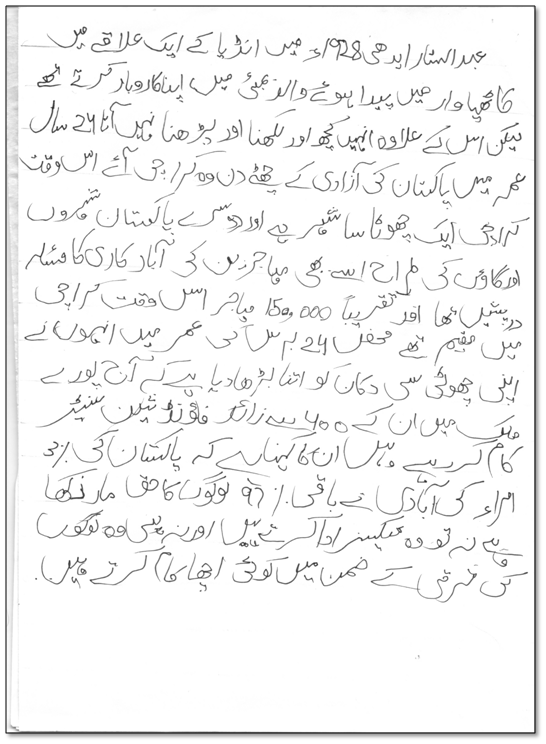 عبدالستار ایدھی 1928ء میں انڈیا کے ایک علاقے میں
کاٹھیاوار میں پیدا ہوئے والد بمبئی میں اپنا کاروبار کرتے تھے
لیکن اس کے علاوہ انہیں کچھ اور لکھنا اور پڑھنا نہیں آتا 24 سال
عمر میں پاکستان کی آزادی کے چھٹے دن وہ کراچی آئے اس وقت
کراچی ایک چھوٹا سا شہر ہے اور دوسرے پاکستان شہروں
اور گاؤں کی طرح اسے بھی مہاجرین کی آباد کاری کا مسئلہ
درپیش تھا اور تقریباً 150,000 مہاجر اس وقت کراچی
میں مقیم تھے محض 24 برس کی عمر میں انہوں نے
اپنی چھوٹی سی دکان کو اتنا بڑھا دیا ہے کہ آج پورے
ملک میں ان کے 400 سے زائد فاؤنڈیشن سینٹر
کام کر رہے ہیں ان کا کہنا ہے کہ پاکستان کی %3
امراء کی آبادی نے باقی %97 لوگوں کا حق مار رکھا
ہے نہ تو وہ ٹیکس ادا کرتے ہیں اور نہ ہی وہ لوگوں
کی ترقی کے ضمن میں کوئی اچھا کام کرتے ہیں.